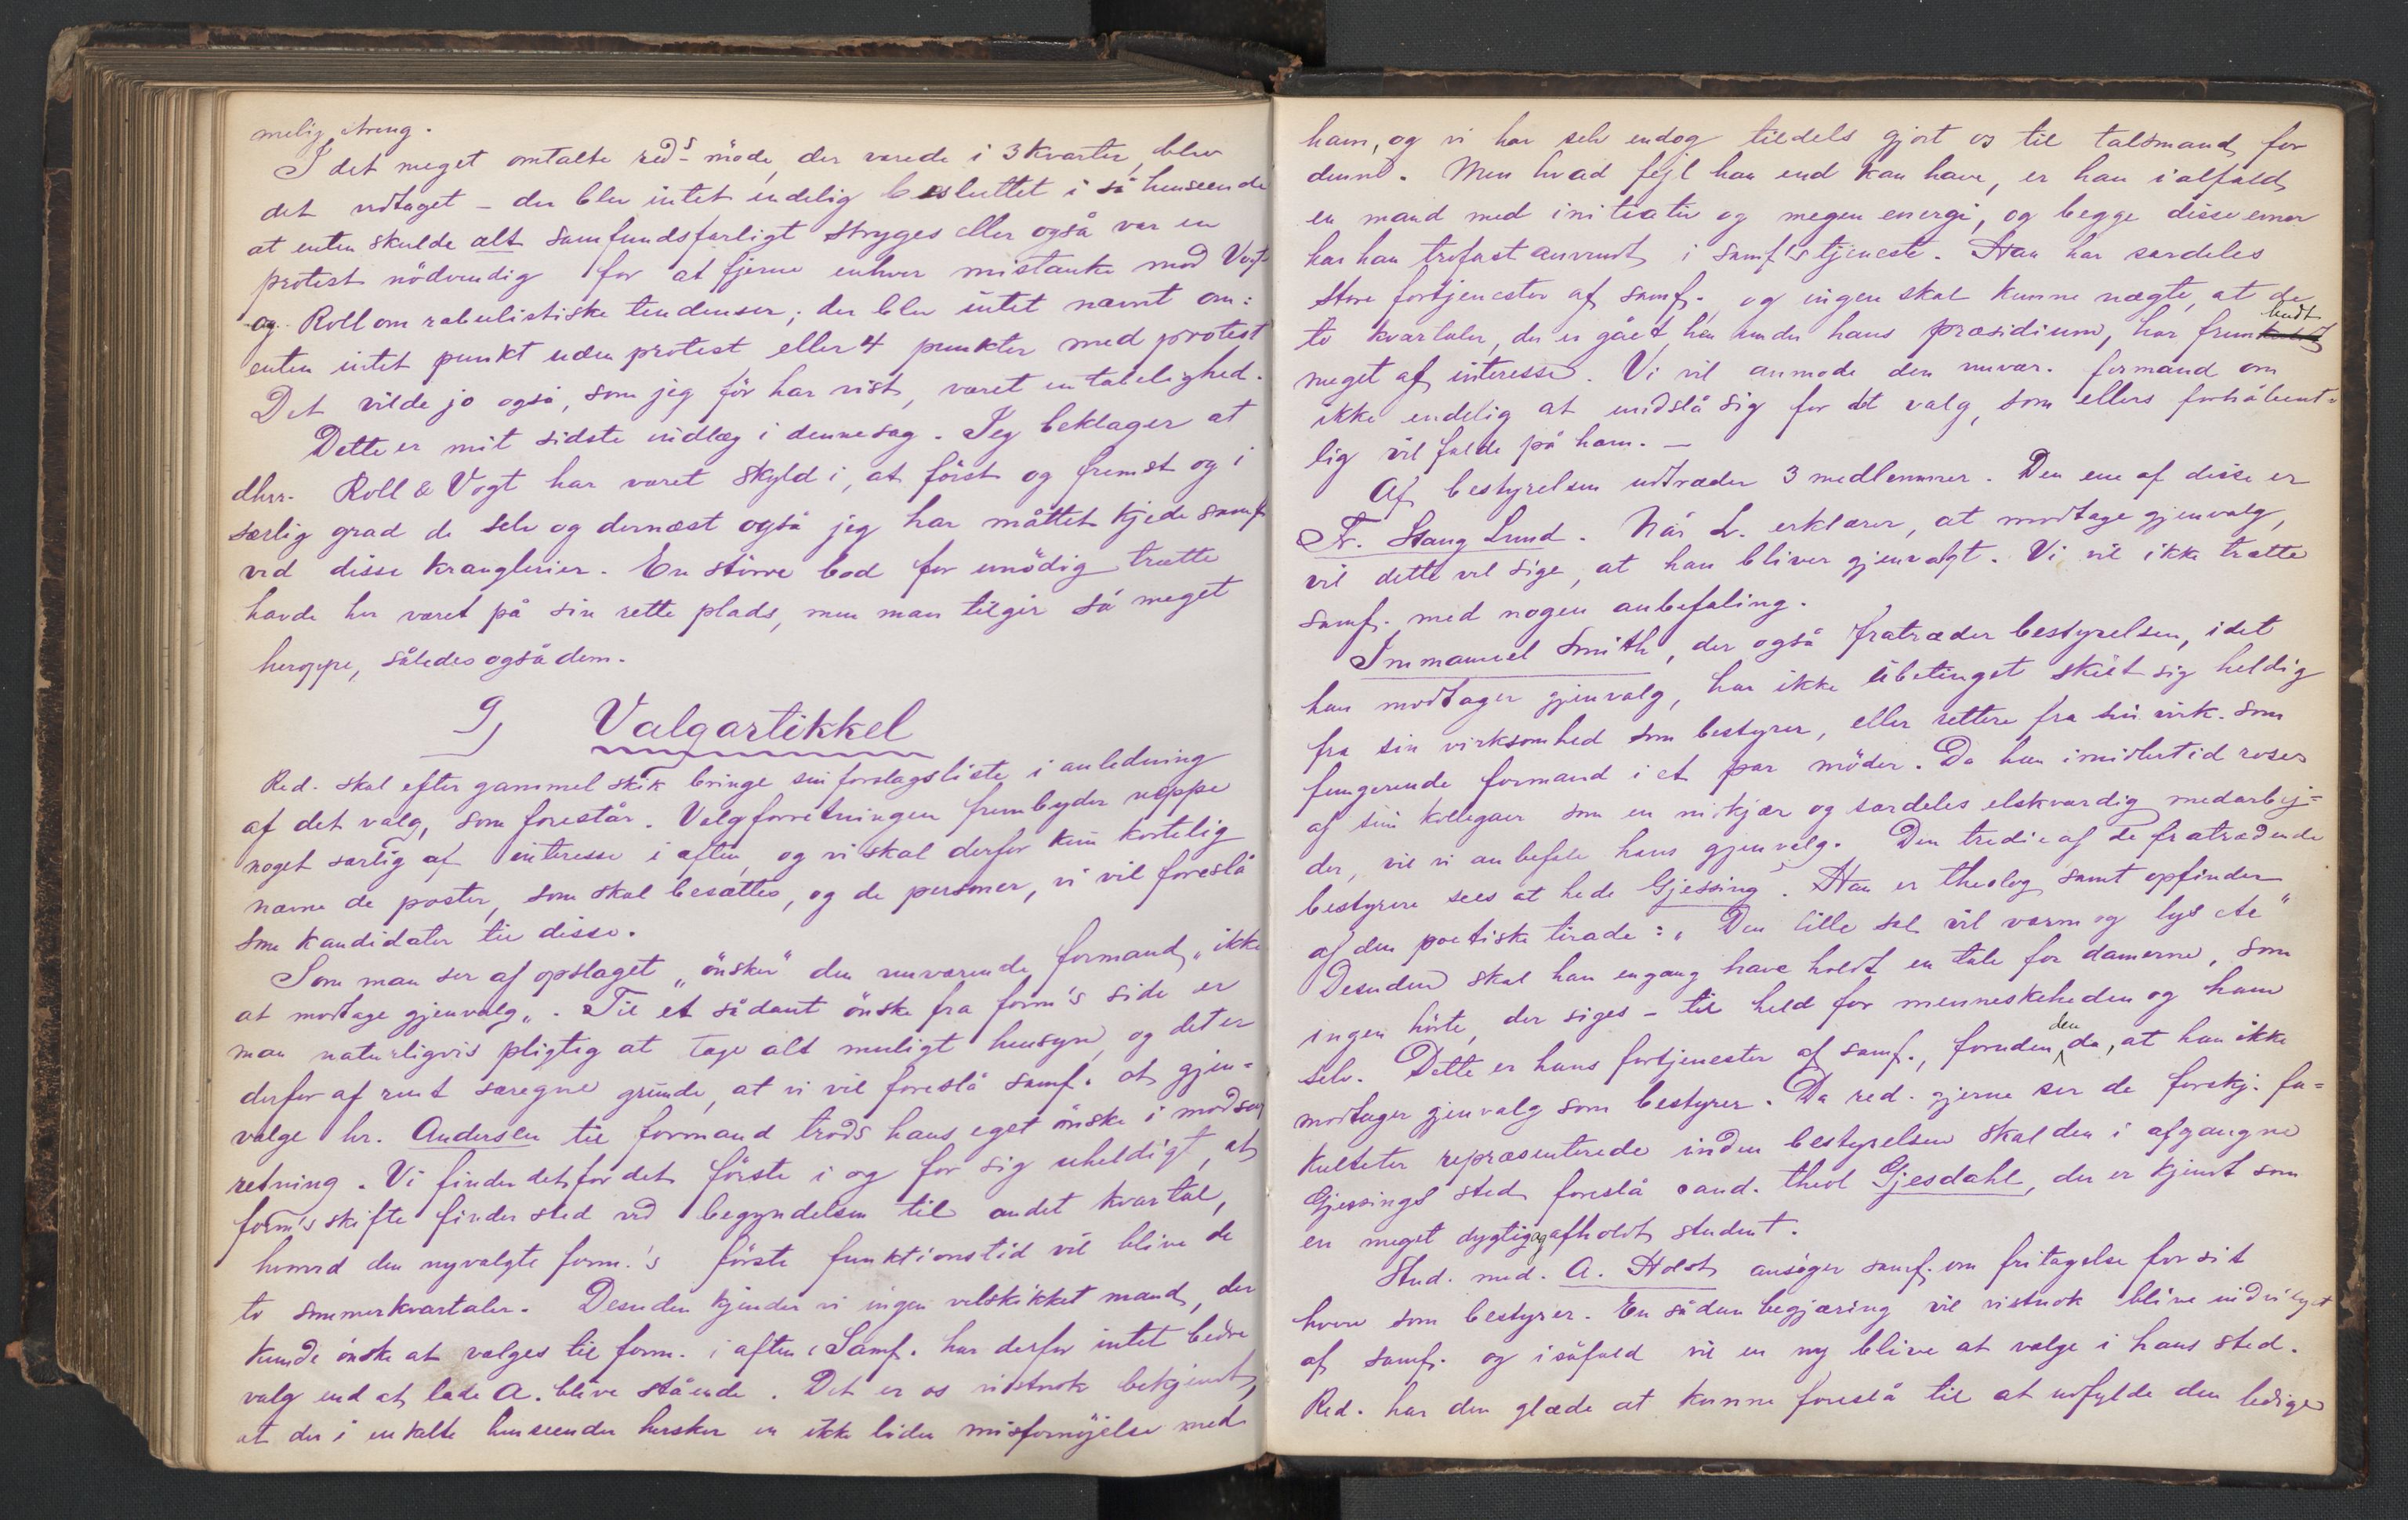 melig streng.
I det meget omtalte red-s møde, der varede i 3 kvarter, blev
det vedtaget - der blev intet endelig besluttet i så henseende
at enten skulde alt samfundsfarligt stryges eller også var en
protest nödvendig for at fjerne enhver mistanke mod Vogt
og Roll om rabulistiske tendenser; der blev intet nævnt om:
enten intet punkt uden protest eller 4 punkter med protest
Det vilde jo også, som jeg för har vist, været en tåbelighed.
Dette er mit sidste indlæg i denne sag. Jeg beklager at
dhrr. Roll & Vogt har været skyld i, at först og fremst og i
særlig grad de selv og dernæst også jeg har måttet kjede samf.
ved disse kranglerier. En större bod for unödig trætte
havde her været på sin rette plads, men man tilgir så meget
heroppe, således også dem.
9) Valgartikkel
Red. skal efter gammel skik bringe sin forslagsliste i anledning
af det valg, som forestår. Valgforretningen frembyder neppe
noget særlig af interesse i aften, og vi skal derfor kun kortelig
nævne de poster, som skal besættes, og de personer, vi vil foreslå
som kandidater til disse.
Som man ser af opslaget "önsker" den nuværende formand "ikke
at modtage gjenvalg". Til et sådant önske fra form's side er
man naturligvis pligtig at tage alt muligt hensyn, og det er
derfor af rent særegne grunde, at vi vil foreslå samf. at gjen=
vælge hr. Andersen til formand trods hans eget önske i modsat
retning. Vi finder det for det förste i og for sig uheldigt, at
form's skifte finder sted ved begyndelsen til andet kvartal,
hvorved den nyvalgte form.'s förste funktionstid vil blive de
to sommerkvartaler. Desuden kjender vi ingen velskikket mand, der
kunde önske at vælges til form. i aften. Samf. har derfor intet bedre
valg end at lade A. blive stående. Det er os vistnok bekjendt,
at der i enkelte henseender hersker en ikke liden misfornöjelse med
ham, og vi har selv endog tildels gjort os til talsmand for
denne. Men hvad fejl han end kan have, er han ialfald
en mand med initiativ og megen energi, og begge disse evner
har han trofast anvendt i samf's tjeneste. Han har særdeles
store fortjenester af samf. og ingen skal kunne nægte, at de
to kvartaler, der er gået hen under hans præsidium, har frembudt
meget af interesse. Vi vil anmode den nuvær. formand om
ikke endelig at undslå sig for det valg, som ellers forhåbent-
lig vil falde på ham. -
Af bestyrelsen udtræder 3 medlemmer. Den ene af disse er
Fr. Stang Lund. Når L. erklærer, at modtage gjenvalg,
vil dette vel sige, at han bliver gjenvalgt. Vi vil ikke trætte
samf. med nogen anbefaling.
Immanuel Smith, der også fratræder bestyrelsen, idet
han modtager gjenvalg, har ikke ubetinget skilt sig heldig
fra sin virksomhed som bestyrer, eller rettere fra sin virk. som
fungerende formand i et par möder. Da han imidlertid roses
af sine kollegaer som en nidkjær og særdeles elskværdig medarbej=
der, vil vi anbefale hans gjenvalg. Den tredie af de fratrædende
bestyrere sees at hede Gjessing. Han er theolog samt opfinder
af den poetiske tirade: "Den lille sal vil varm og lys etc"
Desuden skal han engang have holdt en tale for damerne, som
ingen hörte, der siges - til held for menneskeheden og ham
selv. Dette er hans fortjenester af samf., foruden den da, at han ikke
modtager gjenvalg som bestyrer. Da red. gjerne ser de forskj. fa=
kulteter repræsenterede inden bestyrelsen skal den i afgangne
Gjessings sted foreslå cand. theol Gjesdahl, der er kjendt som
en meget dygtig og afholdt student.
Stud. med. A. Holst ansöger samf. om fritagelse for sit
hverv som bestyrer. En sådan begjæring vil vistnok blive indvilget
af samf. og isåfald vil en ny blive at vælge i hans sted.
Red. har den glæde at kunne foreslå til at udfylde den ledige